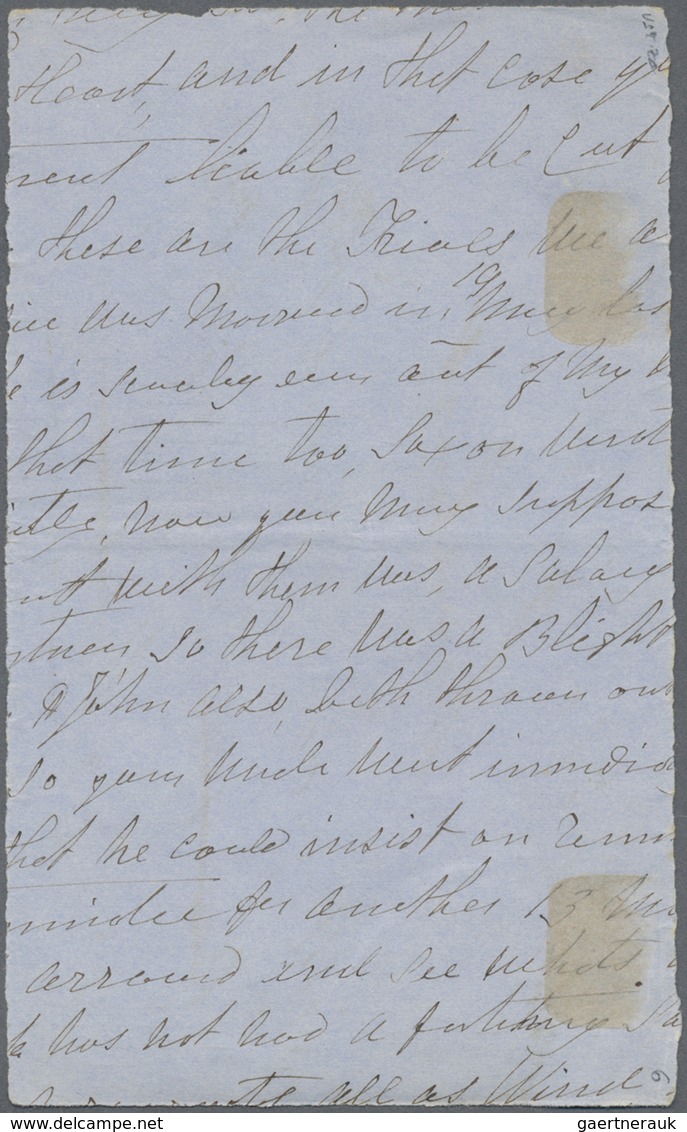 Heart, and in that case yo
ment liable to be Cut
these are the Trials we a
was Married in 19 May las
is out of My
that time too, Saxon went
now you may suppos
with them was, a Salary
so there was a Blight
& John also, both thrown out
so your Uncle went immedia
that he could insist on
for another 13 Mo
arround and see whats
has not had a farthing Sa
all as Wind
6
gaertnerauk